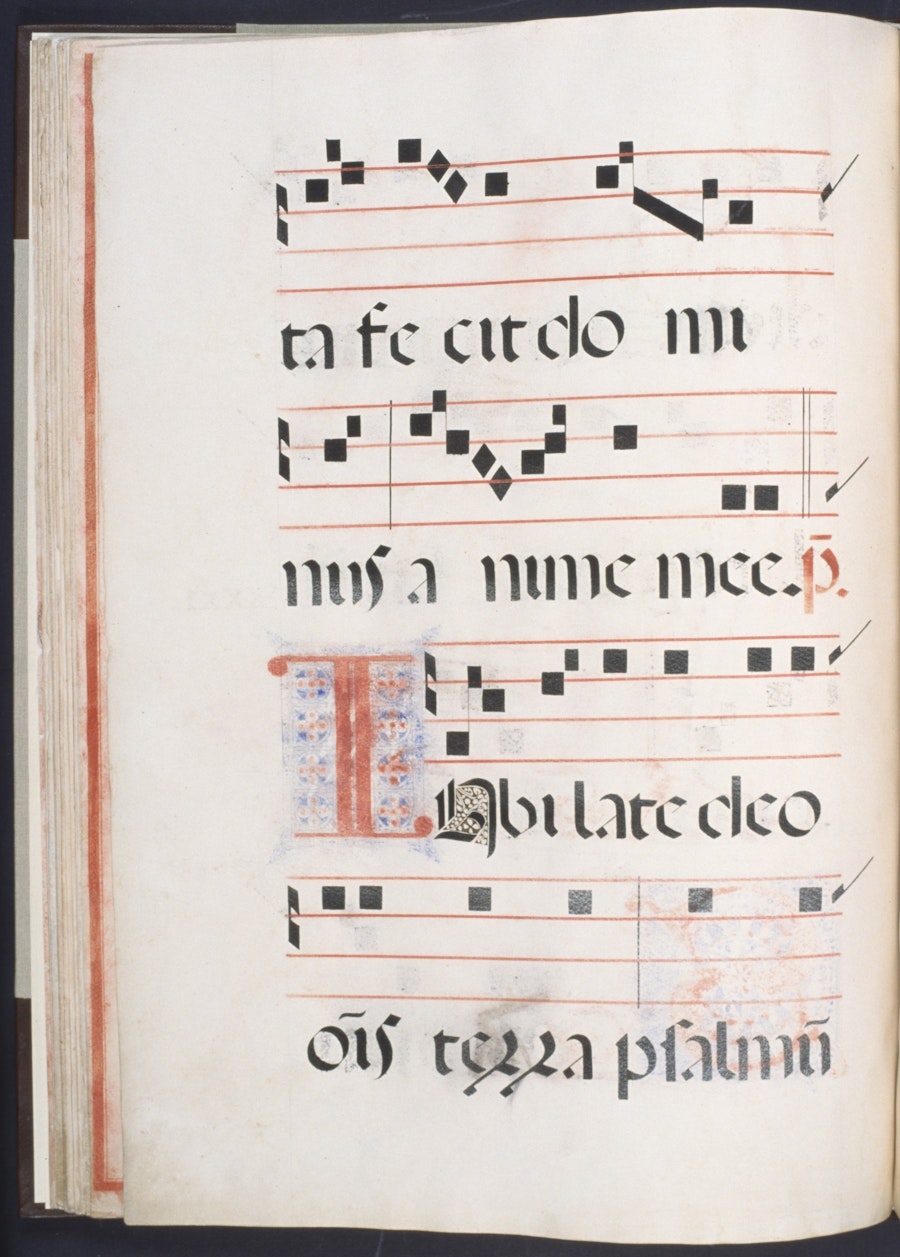 ta fe cit do mi
nus a nime mee. p̄.
IUbilate deo
oı̄s terra psalmū